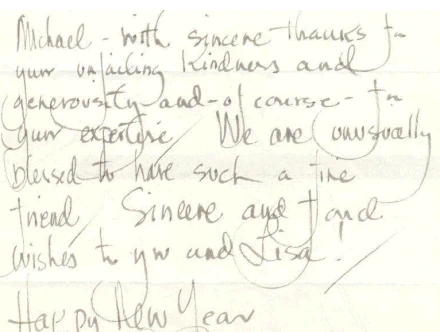 Michael - with sincere thanks for
your unfailing kindness and
generousity and - of course - for
your expertise We are unusually
blessed to have such a fine
friend Sincere and fond
wishes to you and Lisa!
Happy New Year